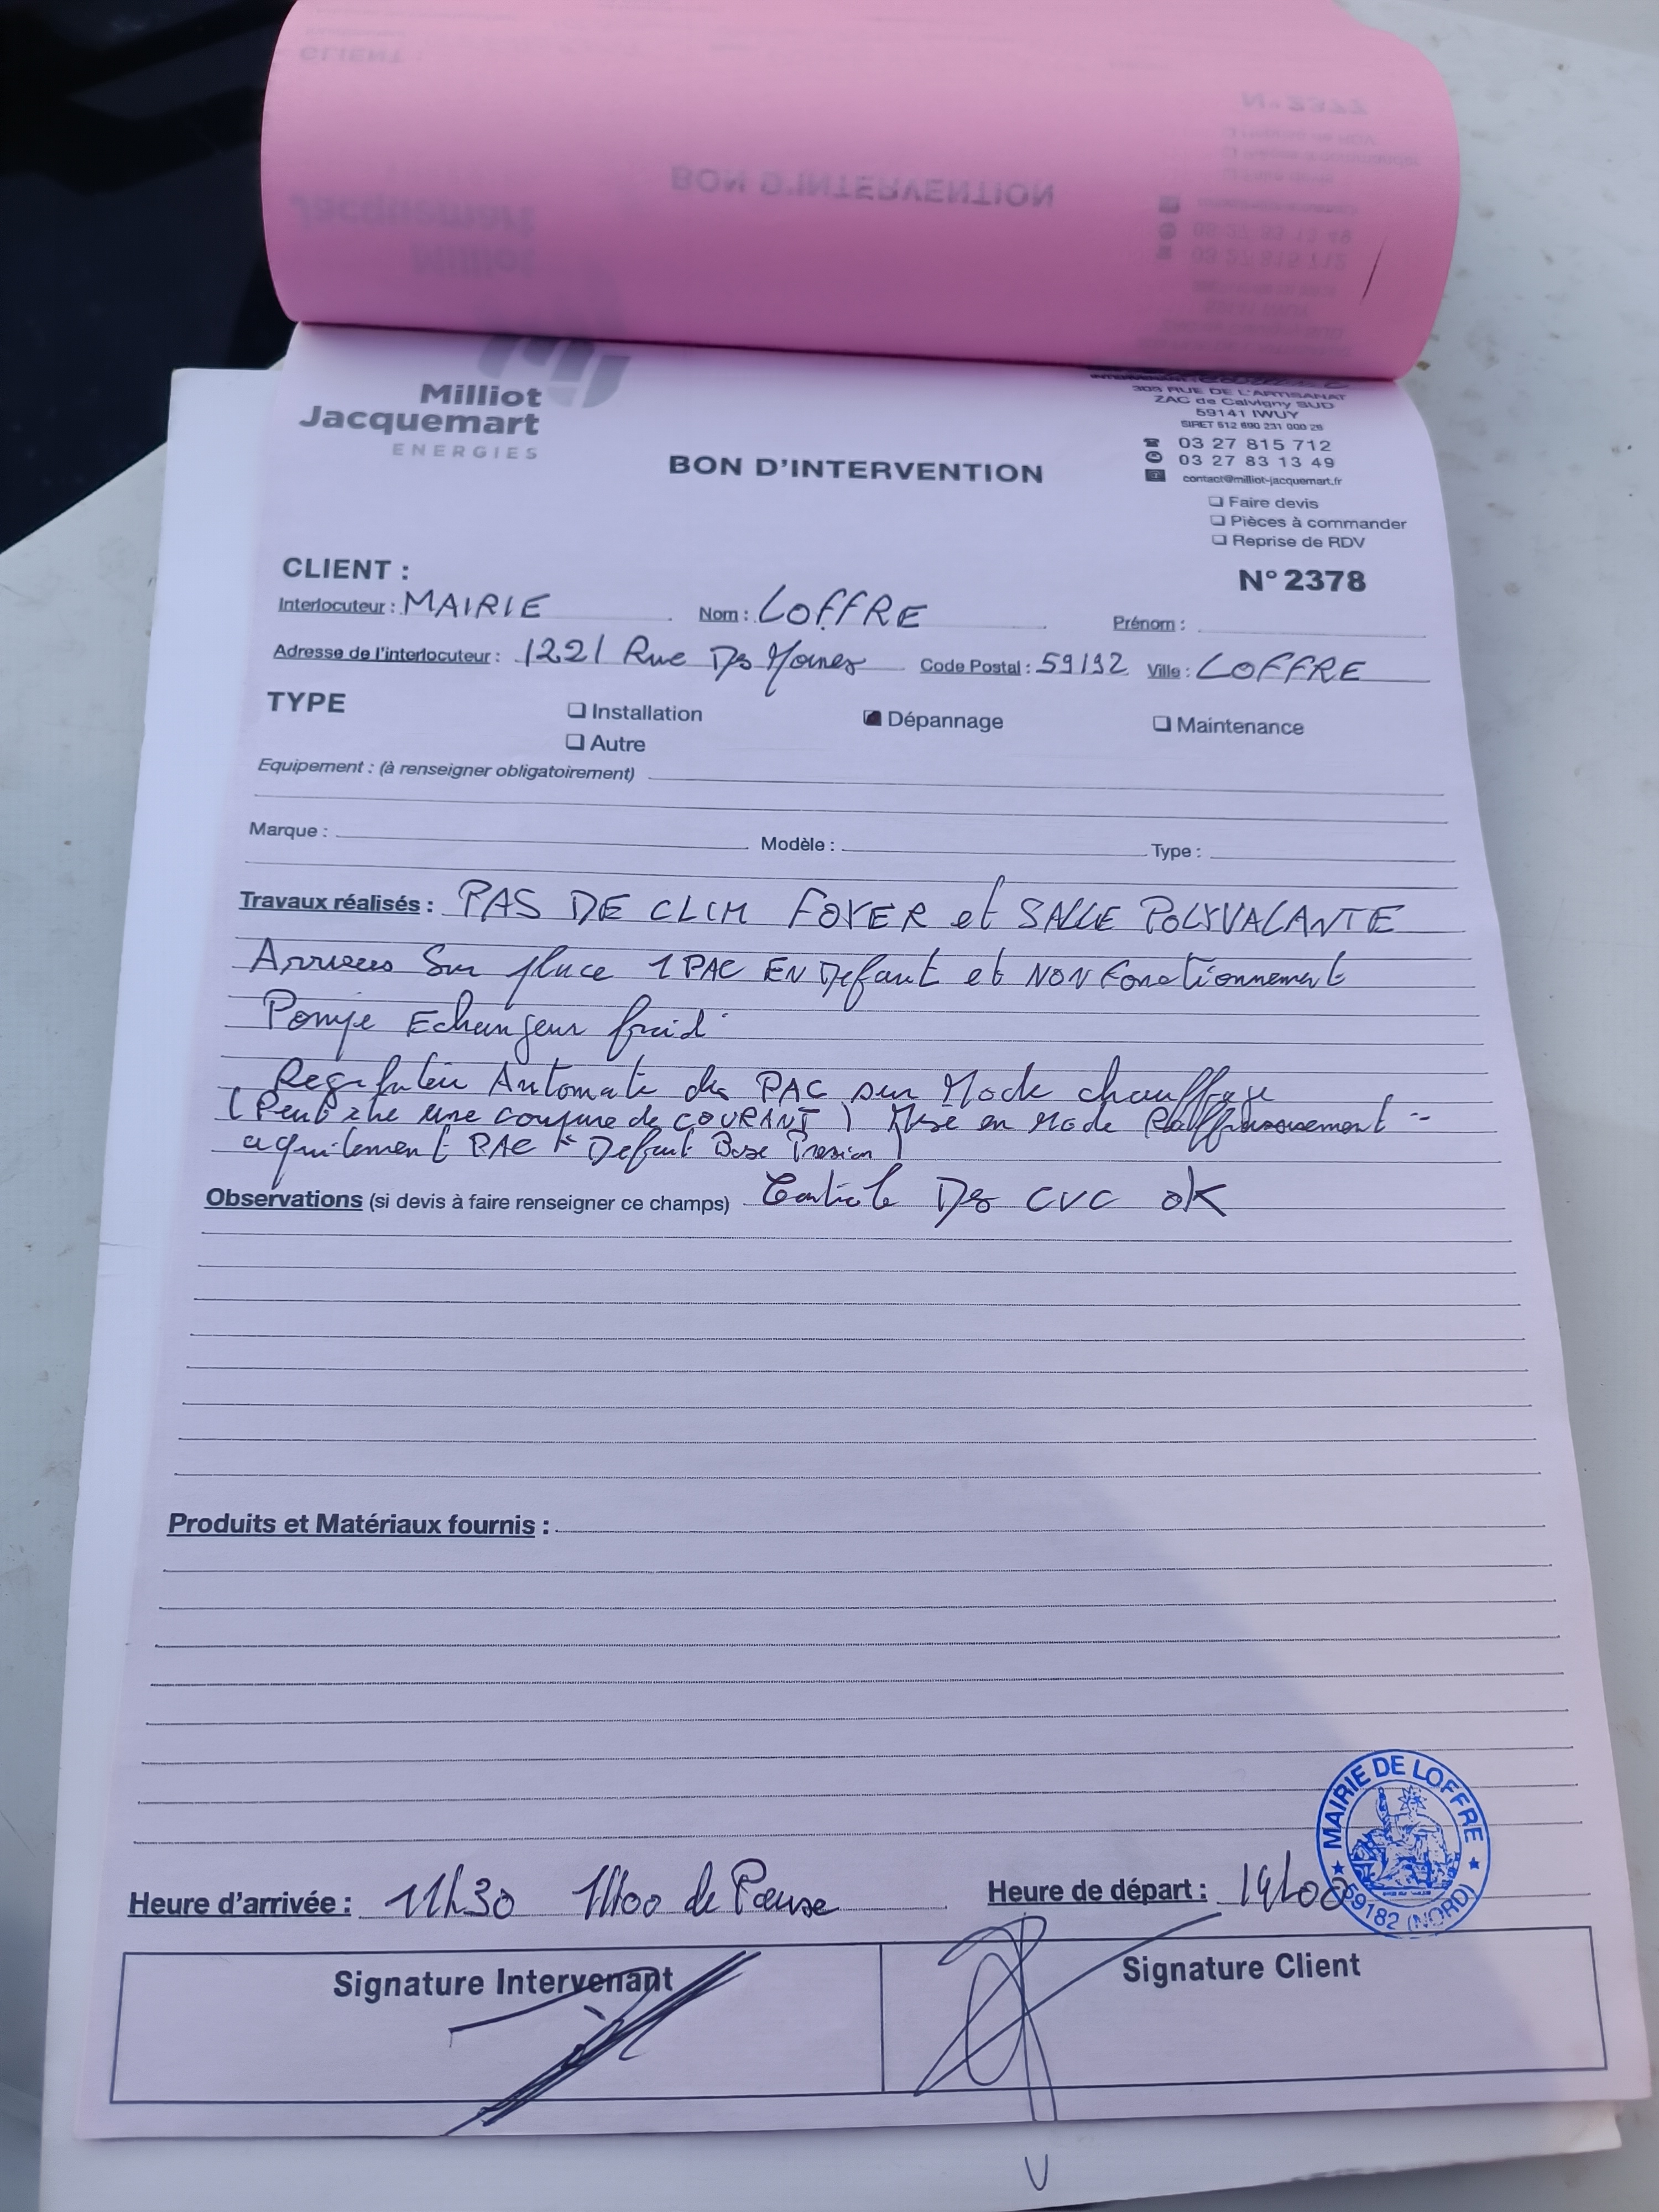 BON D'INTERVENTION
Milliot
Jacquemart
ENERGIES
BON D'INTERVENTION
303 RUE DE L'ARTISANAT
ZAC de Calvigny SUD
59141 IWUY
03 27 815 712
03 27 83 13 49
contact@milliot-jacquemart.fr
❏ Faire devis
❏ Pièces à commander
❏ Reprise de RDV
N° 2378
CLIENT :
Interlocuteur : MAIRIE Nom : LOFFRE Prénom :
Adresse de l'interlocuteur : 1221 Rue Ds Moines Code Postal : 59192 Ville : LOFFRE
TYPE ❏ Installation Dépannage ❏ Maintenance
❏ Autre
Equipement : (à renseigner obligatoirement)
Marque : Modèle : Type :
Travaux réalisés : PAS DE CLIM FOYER et SALLE POLYVALANTE
Arrivees Sur place 1 PAC EN Defaut et NON Fonctionnement
Pompe Echangeur froid
Automate des PAC sur Mode chauffage
(Peut etre une coupure de COURANT) Mise en Mode Raffraissement
PAC Defaut Basse Pression
Observations (si devis à faire renseigner ce champs) Controle Ds CVC OK
Produits et Matériaux fournis :
MAIRIE DE LOFFRE
59182 (NORD)
Heure d'arrivée : 11h30 1h00 de Pause Heure de départ : 14h00
Signature Intervenant Signature Client